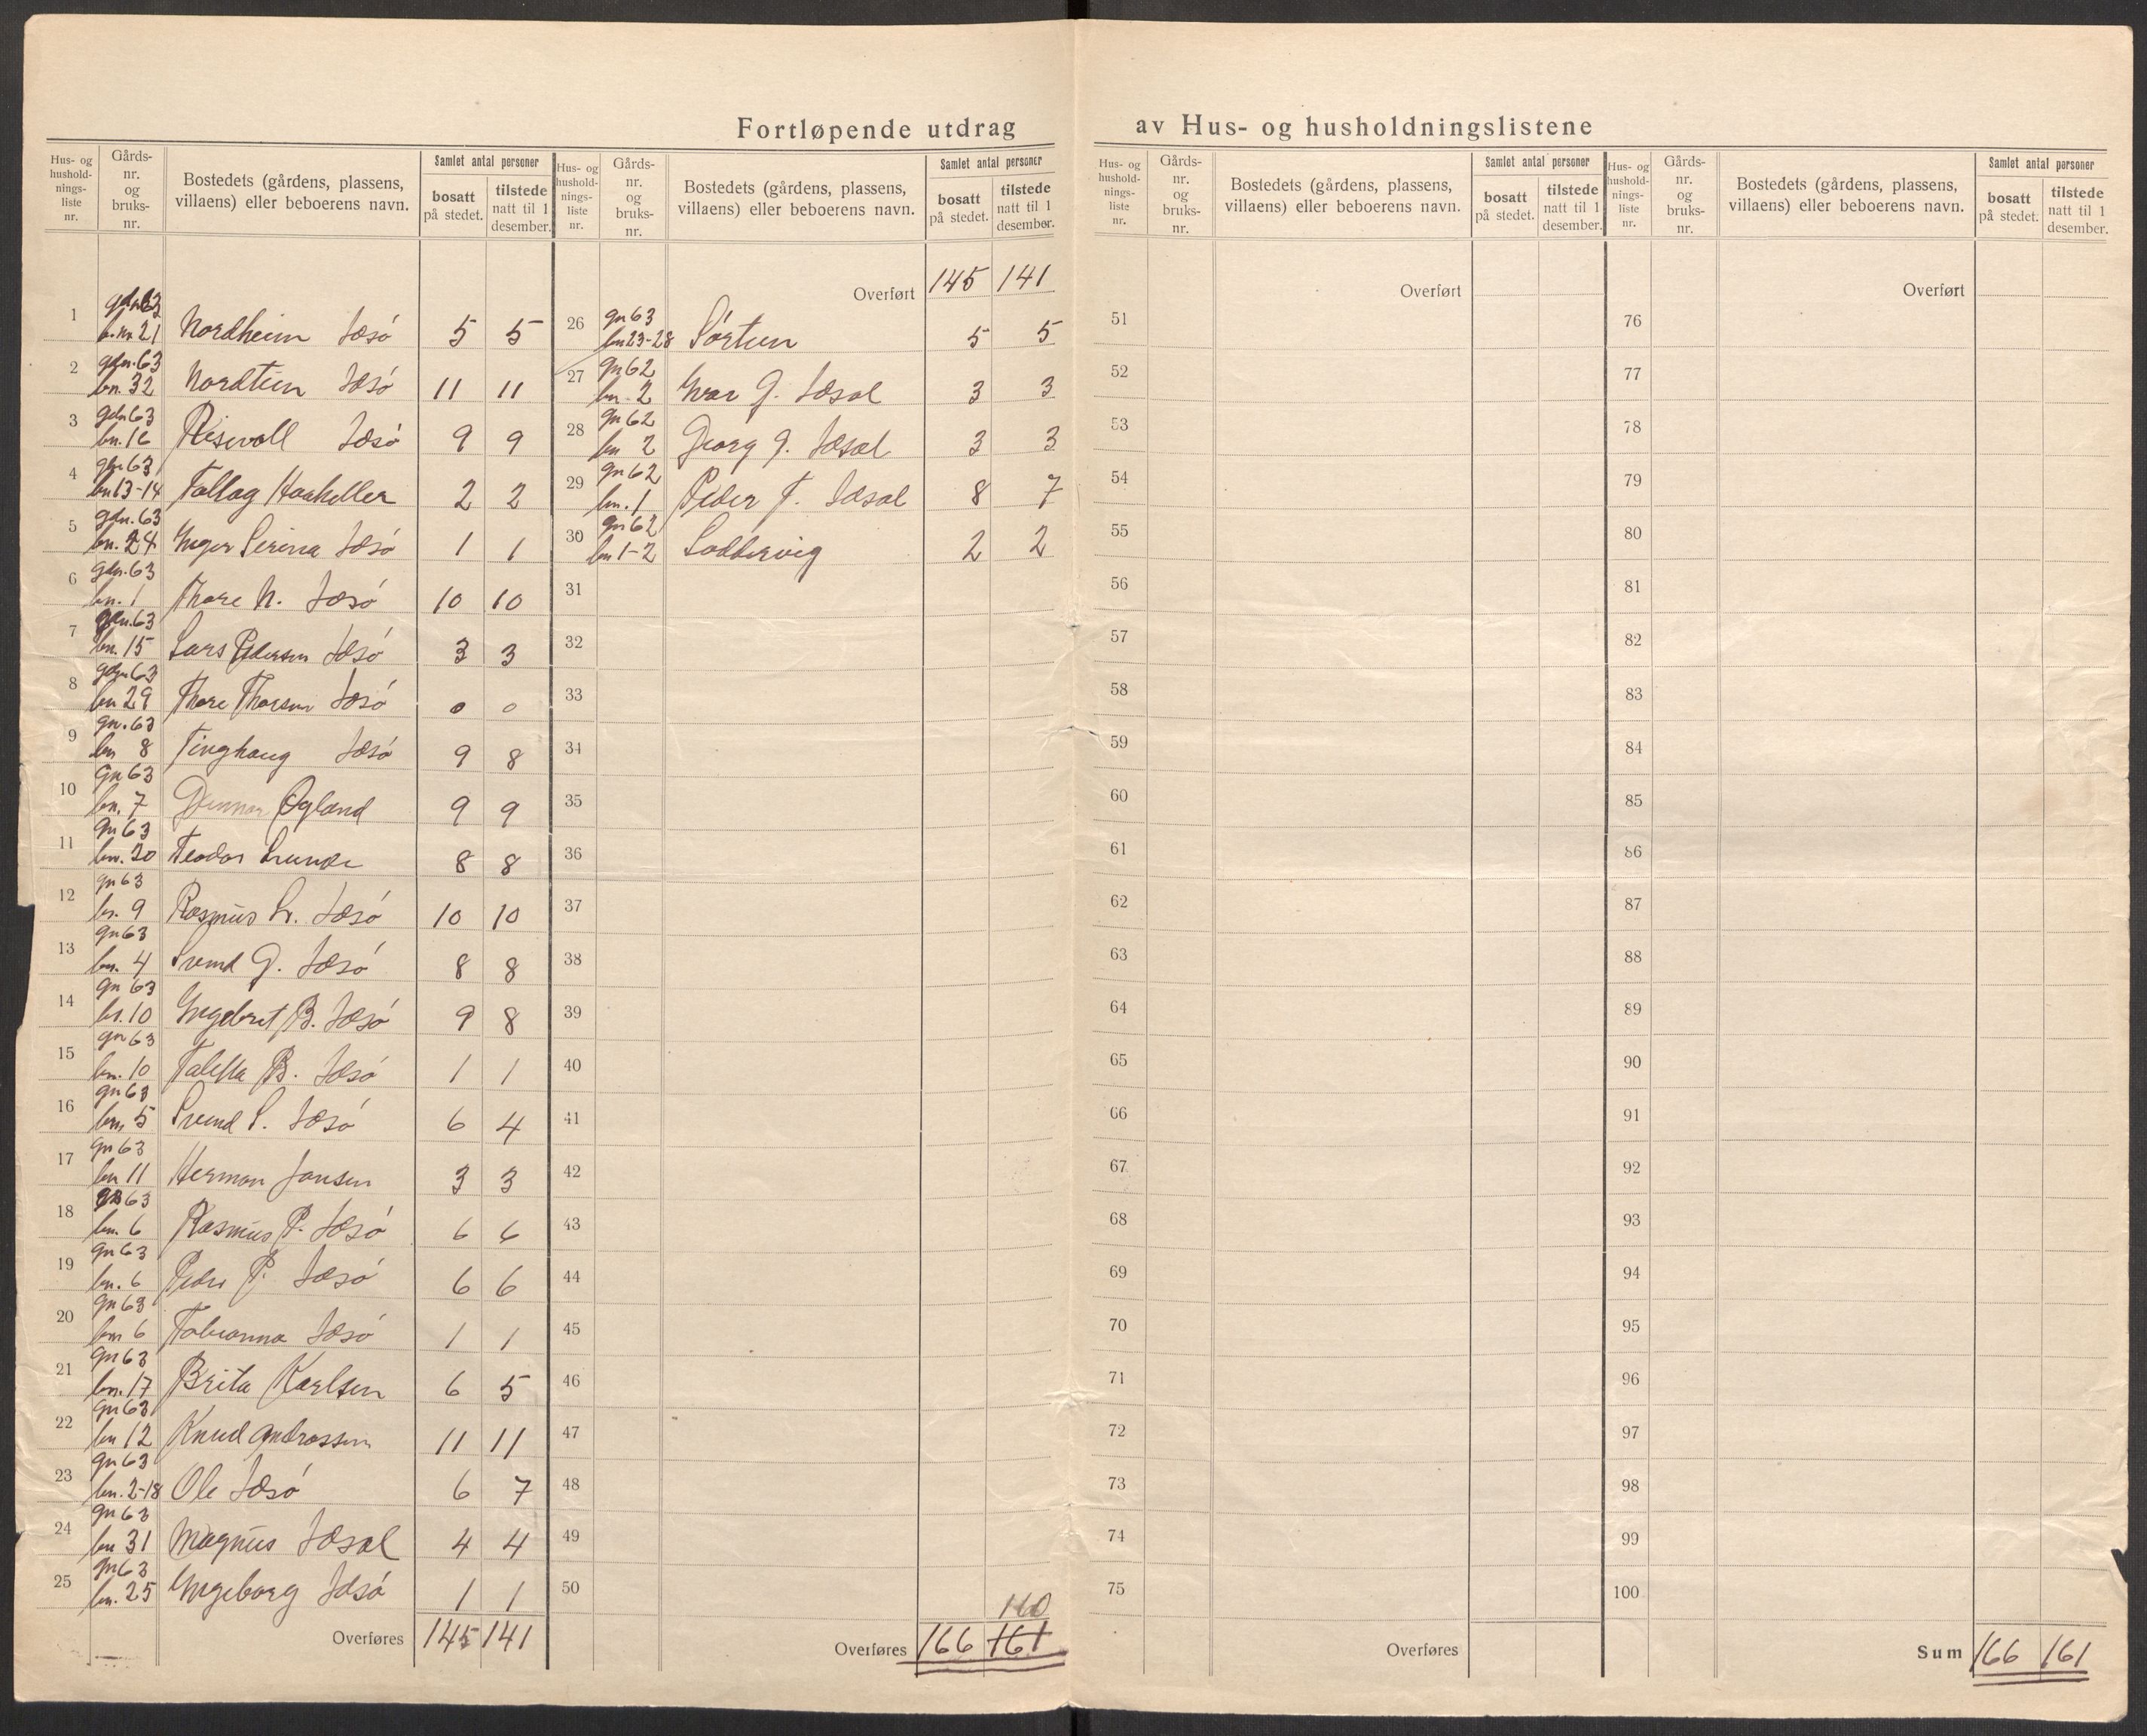 Fortløpende utdrag av Hus- og husholdningslistene
Hus- og hushold-nings-liste nr.
Gårds-nr. og bruks-nr.
Bostedets (gårdens, plassens, villaens) eller beboerens navn.
Samlet antal personer
bosatt på stedet.
tilstede natt til 1 desember.
Hus- og hushold-nings-liste nr.
Gårds-nr. og bruks-nr.
Bostedets (gårdens, plassens, villaens) eller beboerens navn.
Samlet antal personer
bosatt på stedet.
tilstede natt til 1 desember.
1 gdn 63 b.nr. 21 Nordheim Jæsó 5 5
2 gdn. 63 bn. 32 Nordtun Jæsó 11 11
3 gdn 63 bn. 16 Risvoll Jæsó 9 9
4 gdn 63 bn 13-14 Tollag Haaheller 2 2
5 gdn. 63 bn. 24 Inger Serina Jæsó 1 1
6 gdn. 63 bn. 1 Thore N. Jæsó 10 10
7 gdn. 63 bn. 15 Lars Pedersen Jæsó 3 3
8 gdn 63 bn 29 Thore Thorsen Jæsó 0 0
9 gn. 63 bn 8 Tinghaug Jæsó 9 8
10 gn 63 bn. 7 Gunnar Øgland 9 9
11 gn 63 bn. 20 Teodor Lunde 8 8
12 gn 63 br. 9 Rasmus L. Jæsó 10 10
13 gn 63 bn. 4 Svend G. Jæsó 8 8
14 gn 63 br. 10 Ingebret B. Jæsó 9 8
15 gn 63 bn. 10 Taletta B. Jæsó 1 1
16 gn 63 bn. 5 Svend S. Jæsó 6 4
17 gn 63 bn 11 Herman Jansen 3 3
18 gn 63 bn. 6 Rasmus P. Jæsó 6 6
19 gn 63 bn. 6 Peder P. Jæsó 6 6
20 gn 63 bn 6 Tobianna Jæsó 1 1
21 gn 63 bn. 17 Brita Karlsen 6 5
22 gn 63 bn 12 Knud Andrassen 11 11
23 gn 63 bn. 2-18 Ole Jæsó 6 7
24 gn 63 bn 31 Magnus Jæsal 4 4
25 gn 63 bn. 25 Ingeborg Jæsó 1 1
Overføres 145 141
Overført 145 141
26 gn 63 bn 23-28 Sórtun 5 5
27 gn 62 bn. 2 Ivar G. Jæsal 3 3
28 gn 62 bn 2 Georg G. Jæsal 3 3
29 gn 62 bn. 1 Peder T. Jæsal 8 7
30 gn 62 bn 1-2 Loddervig 2 2
31
32
33
34
35
36
37
38
39
40
41
42
43
44
45
46
47
48
49
50
160
Overføres 166 161
Hus- og hushold-nings-liste nr.
Gårds-nr. og bruks-nr.
Bostedets (gårdens, plassens, villaens) eller beboerens navn.
Samlet antal personer
bosatt på stedet.
tilstede natt til 1 desember.
Overført
51
52
53
54
55
56
57
58
59
60
61
62
63
64
65
66
67
68
69
70
71
72
73
74
75
Overføres
Hus- og hushold-nings-liste nr.
Gårds-nr. og bruks-nr.
Bostedets (gårdens, plassens, villaens) eller beboerens navn.
Samlet antal personer
bosatt på stedet.
tilstede natt til 1 desember.
Overført
76
77
78
79
80
81
82
83
84
85
86
87
88
89
90
91
92
93
94
95
96
97
98
99
100
Sum 166 161